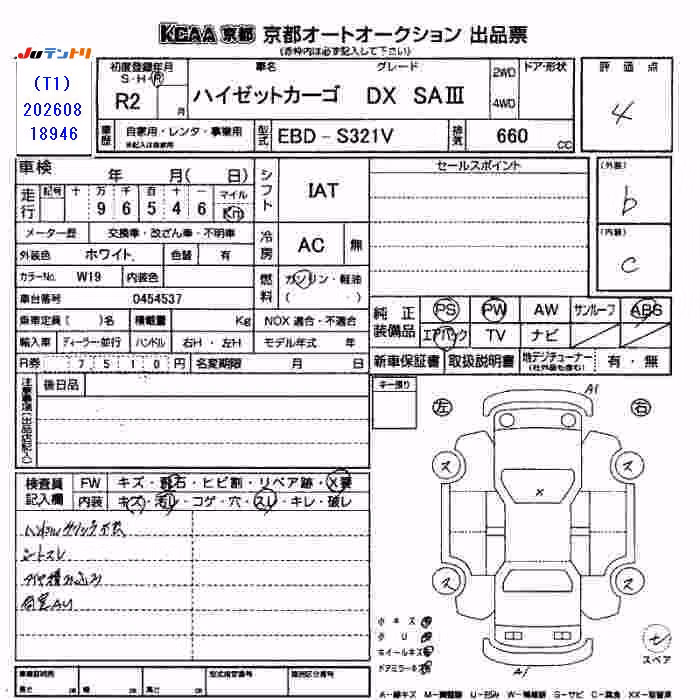 KCAA 京都 京都オートオークション 出品票
(赤枠内は必ず記入して下さい)
JUテントリ
(T1)
202608
18946
初度登録年月
S・H・R
R2 月
車名 グレード
ハイゼットカーゴ DX SAⅢ
2WD
4WD
ドア・形状
評価点
4
車歴
自家用・レンタ・事業用
型式
EBD - S321V
排気
660 CC
車検
年 月( 日)
シフト
IAT
セールスポイント
(外装)
b
走行
記号 十 万 千 百 十 一 マイル
9 6 5 4 6 Km
メーター歴 交換車・改ざん車・不明車
冷房
AC 無
(内装)
C
外装色 ホワイト 色替 有
カラーNo. W19 内装色
燃料
ガソリン・軽油
( )
車台番号 0454537
乗車定員( )名 積載量 Kg NOX 適合・不適合
輸入車 ディーラー・並行 ハンドル 右H・左H モデル年式 年
R券 7510円 名変期限 月 日
純正装備品
PS PW AW サンルーフ ABS
エアバック TV ナビ
新車保証書 取扱説明書 地デジチューナー 有・無
(社外品も含む)
注意事項(出品店記入)
後日品
キー預り
左
右
A1
ス
ス
×
ス
ス
検査員記入欄
FW キズ・飛石・ヒビ割・リペア跡・X要
内装 キズ・汚レ・コゲ・穴・スレ・キレ・破レ
シートスレ
タイヤ積み込み
小キズ
小U
ホイールキズ
ドアミラーキズ
A1
スペア
車輌証明用
長さ cm 幅 cm 高さ cm
型式指定番号
類別区分番号